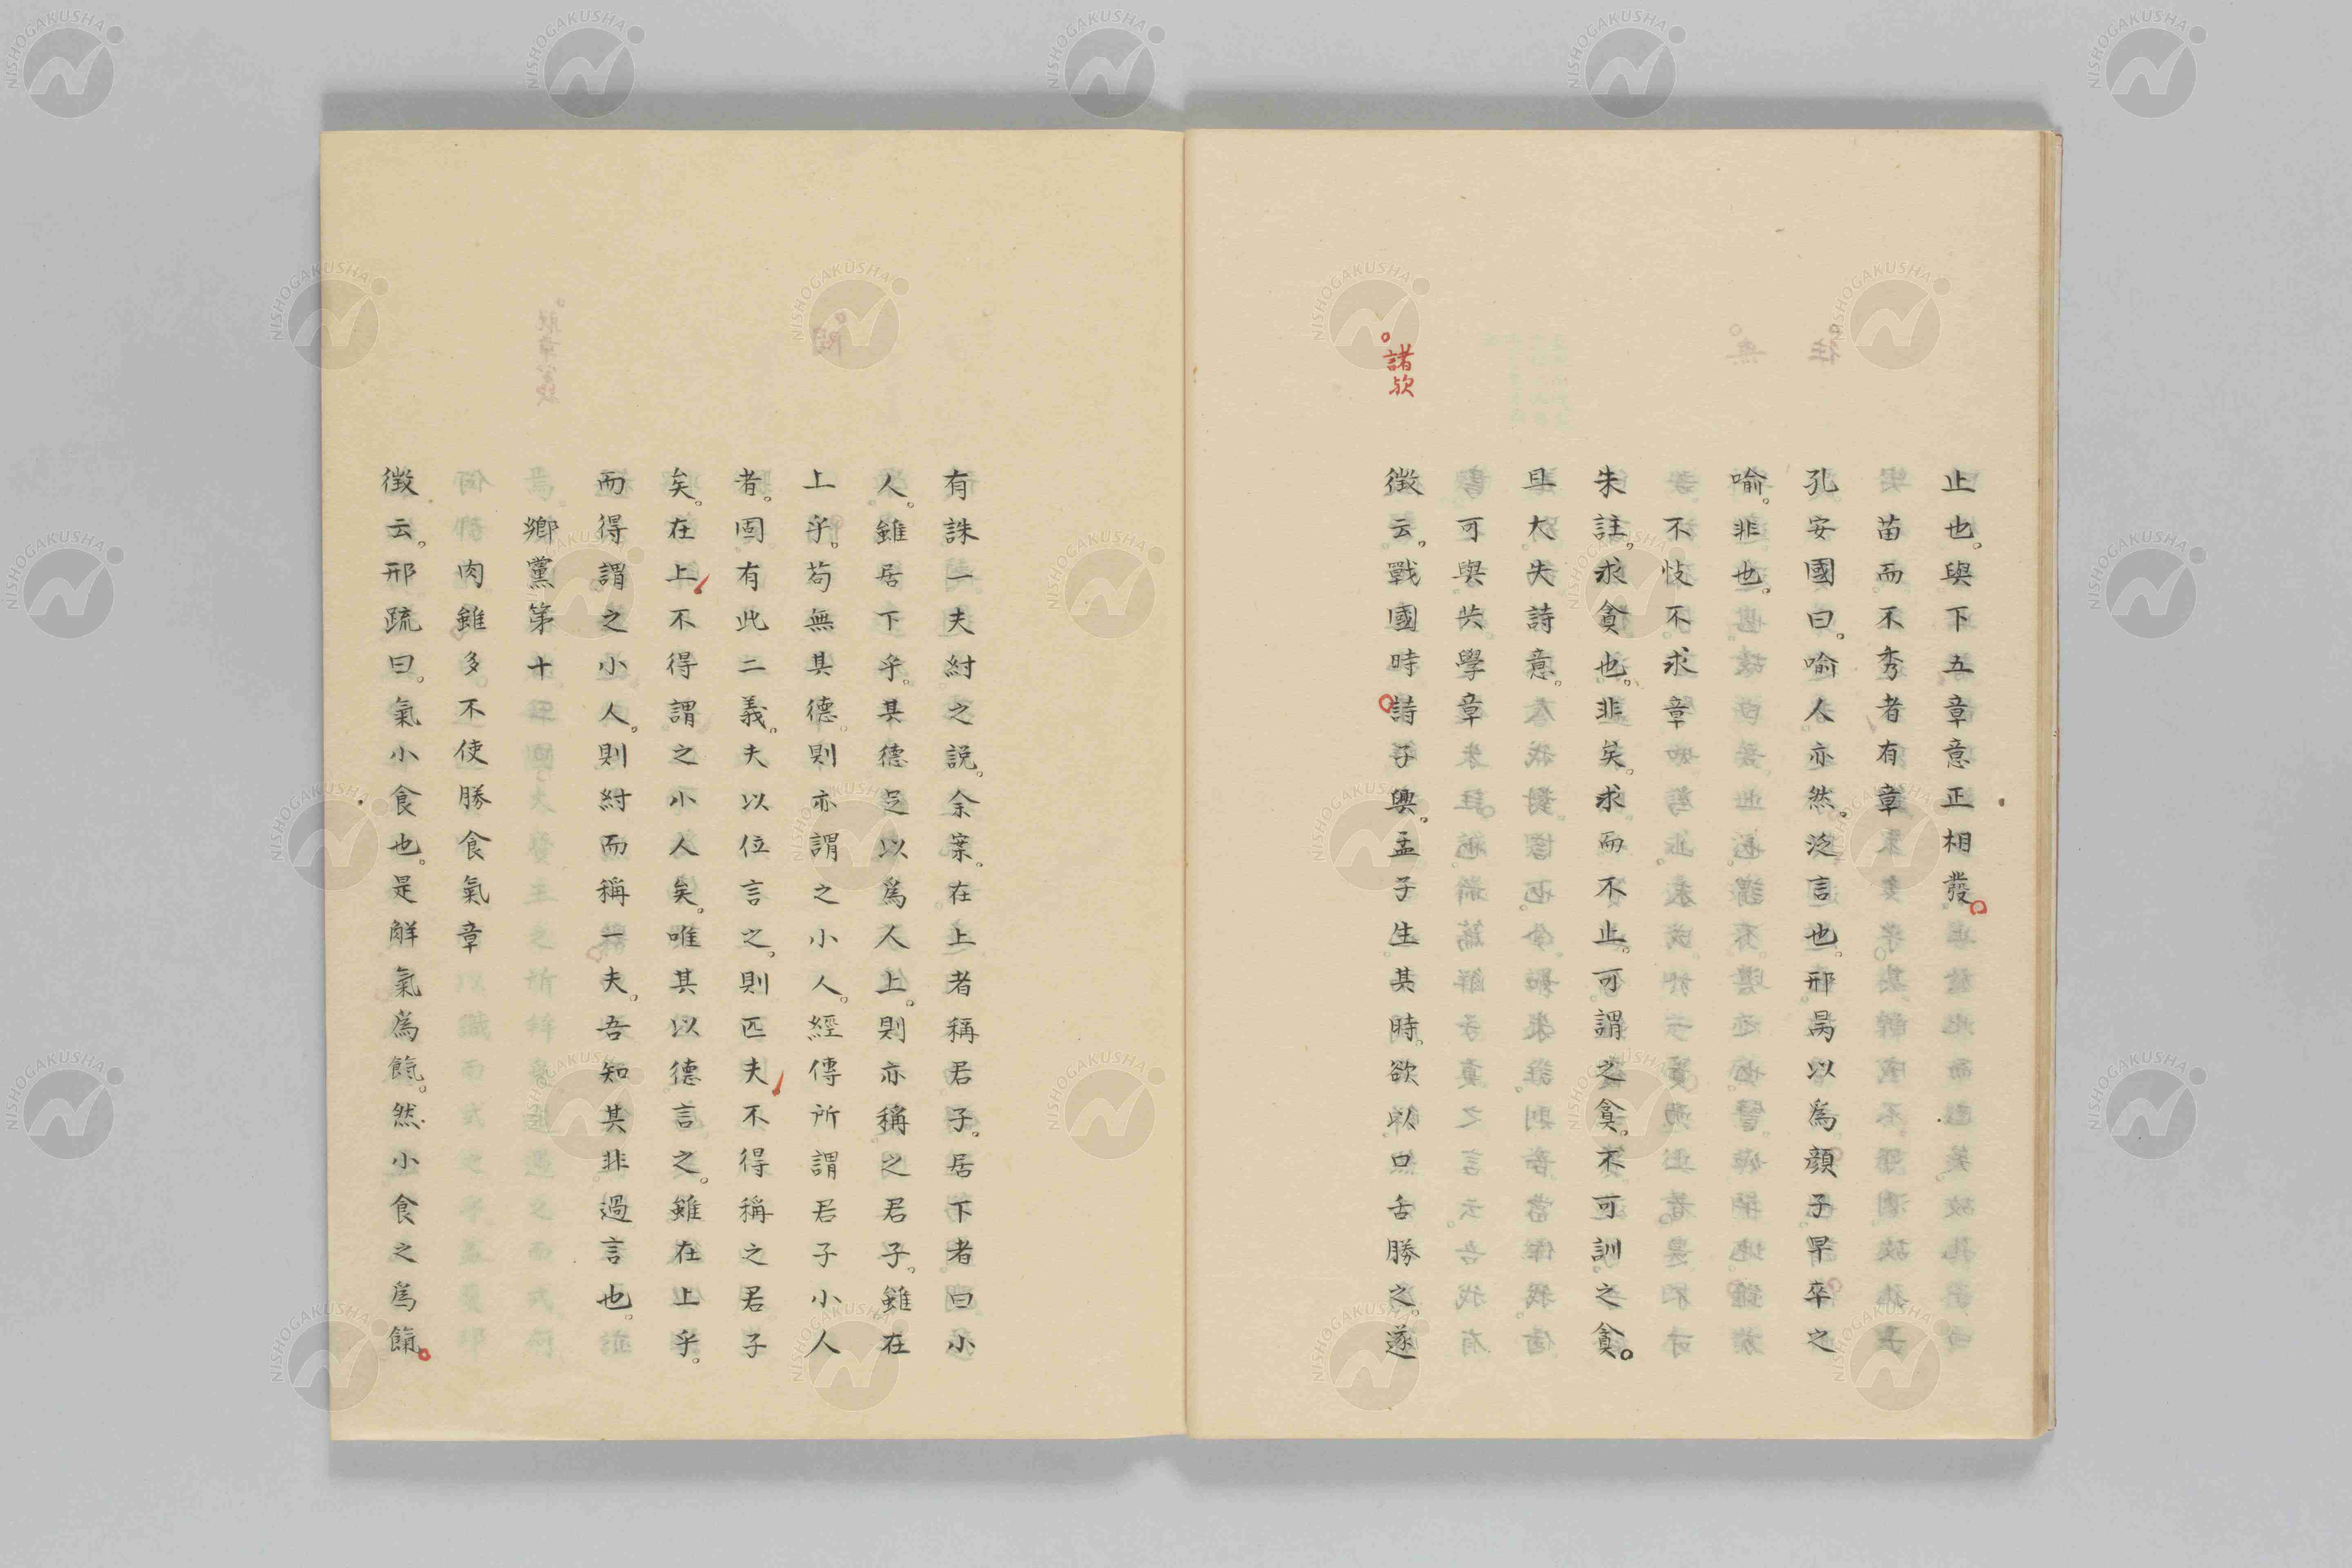 止也。與下五章意正相發。
苗而不秀者有章
孔安國曰。喻人亦然。泛言也。邢昺以爲顔子早卒之
喻。非也。
不忮不求章
朱註。求貪也。非矣。求而不止。可謂之貪。不可訓之貪。
且大失詩意。
可與共學章
諸欤
徴云。戰國時詩子興。孟子生其時。欲以口舌勝之。遂
有誅一夫紂之説。余案。在上者稱君子。居下者曰小
人。雖居下乎。其德足以爲人上。則亦稱之君子。雖在
上乎。苟無其德。則亦謂之小人。經傳所謂君子小人
者。固有此二義。夫以位言之。則匹夫不得稱之君子
矣。在上不得謂之小人矣。唯其以德言之。雖在上乎。
而得謂之小人。則紂而稱一夫。吾知其非過言也。
鄉黨第十
肉雖多不使勝食氣章
徴云。邢疏曰。氣小食也。是解氣爲餼。然小食之爲餼。
NISHOGAKUSHA